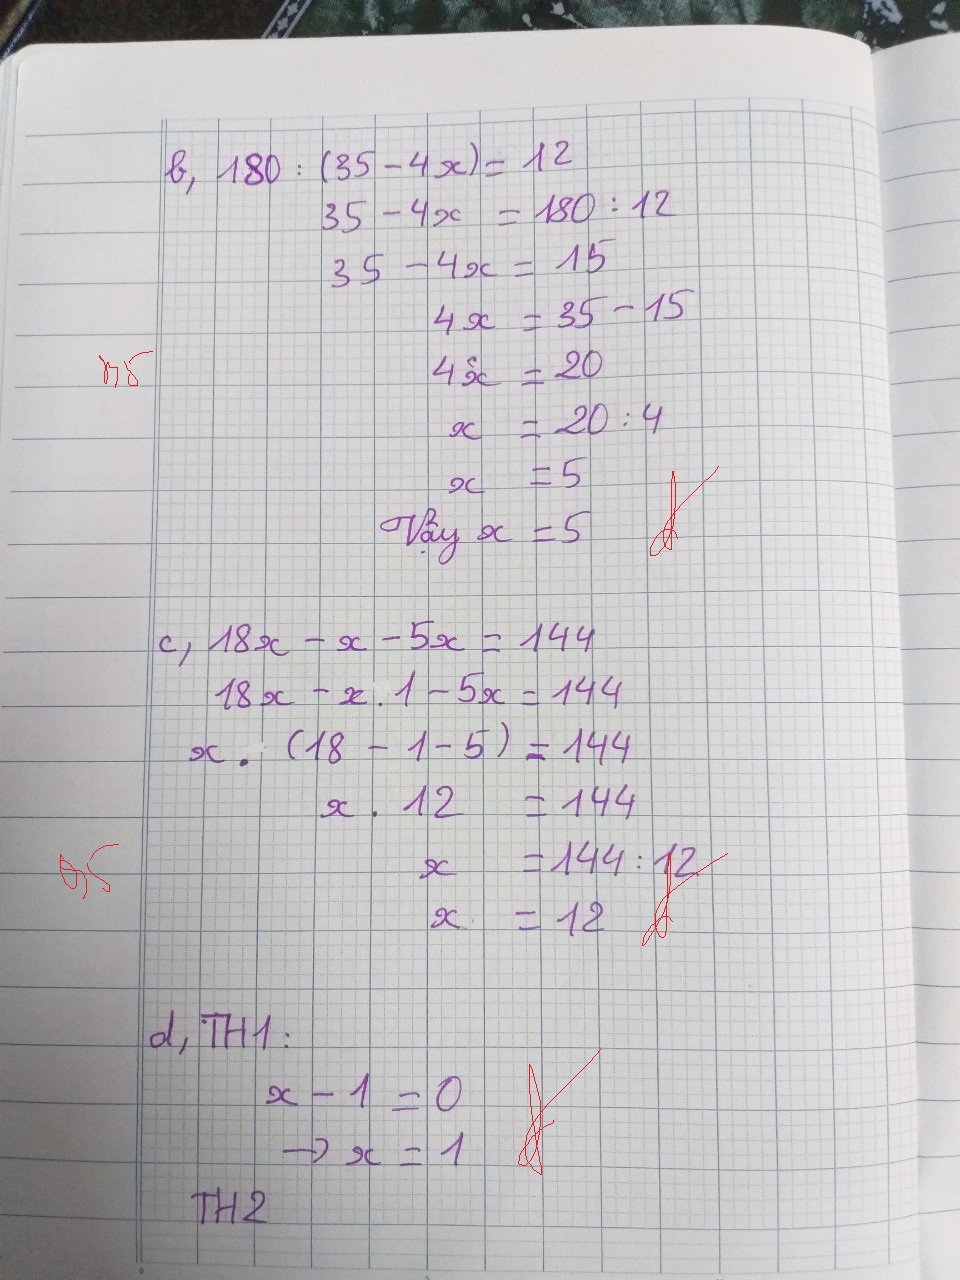 b, 180 : (35 - 4x) = 12
35 - 4x = 180 : 12
35 - 4x = 15
4x = 35 - 15
0,5
4x = 20
x = 20 : 4
x = 5
Vậy x = 5
c, 18x - x - 5x = 144
18x - x . 1 - 5x = 144
x . (18 - 1 - 5) = 144
x . 12 = 144
0,5
x = 144 : 12
x = 12
d, TH1:
x - 1 = 0
→ x = 1
TH2